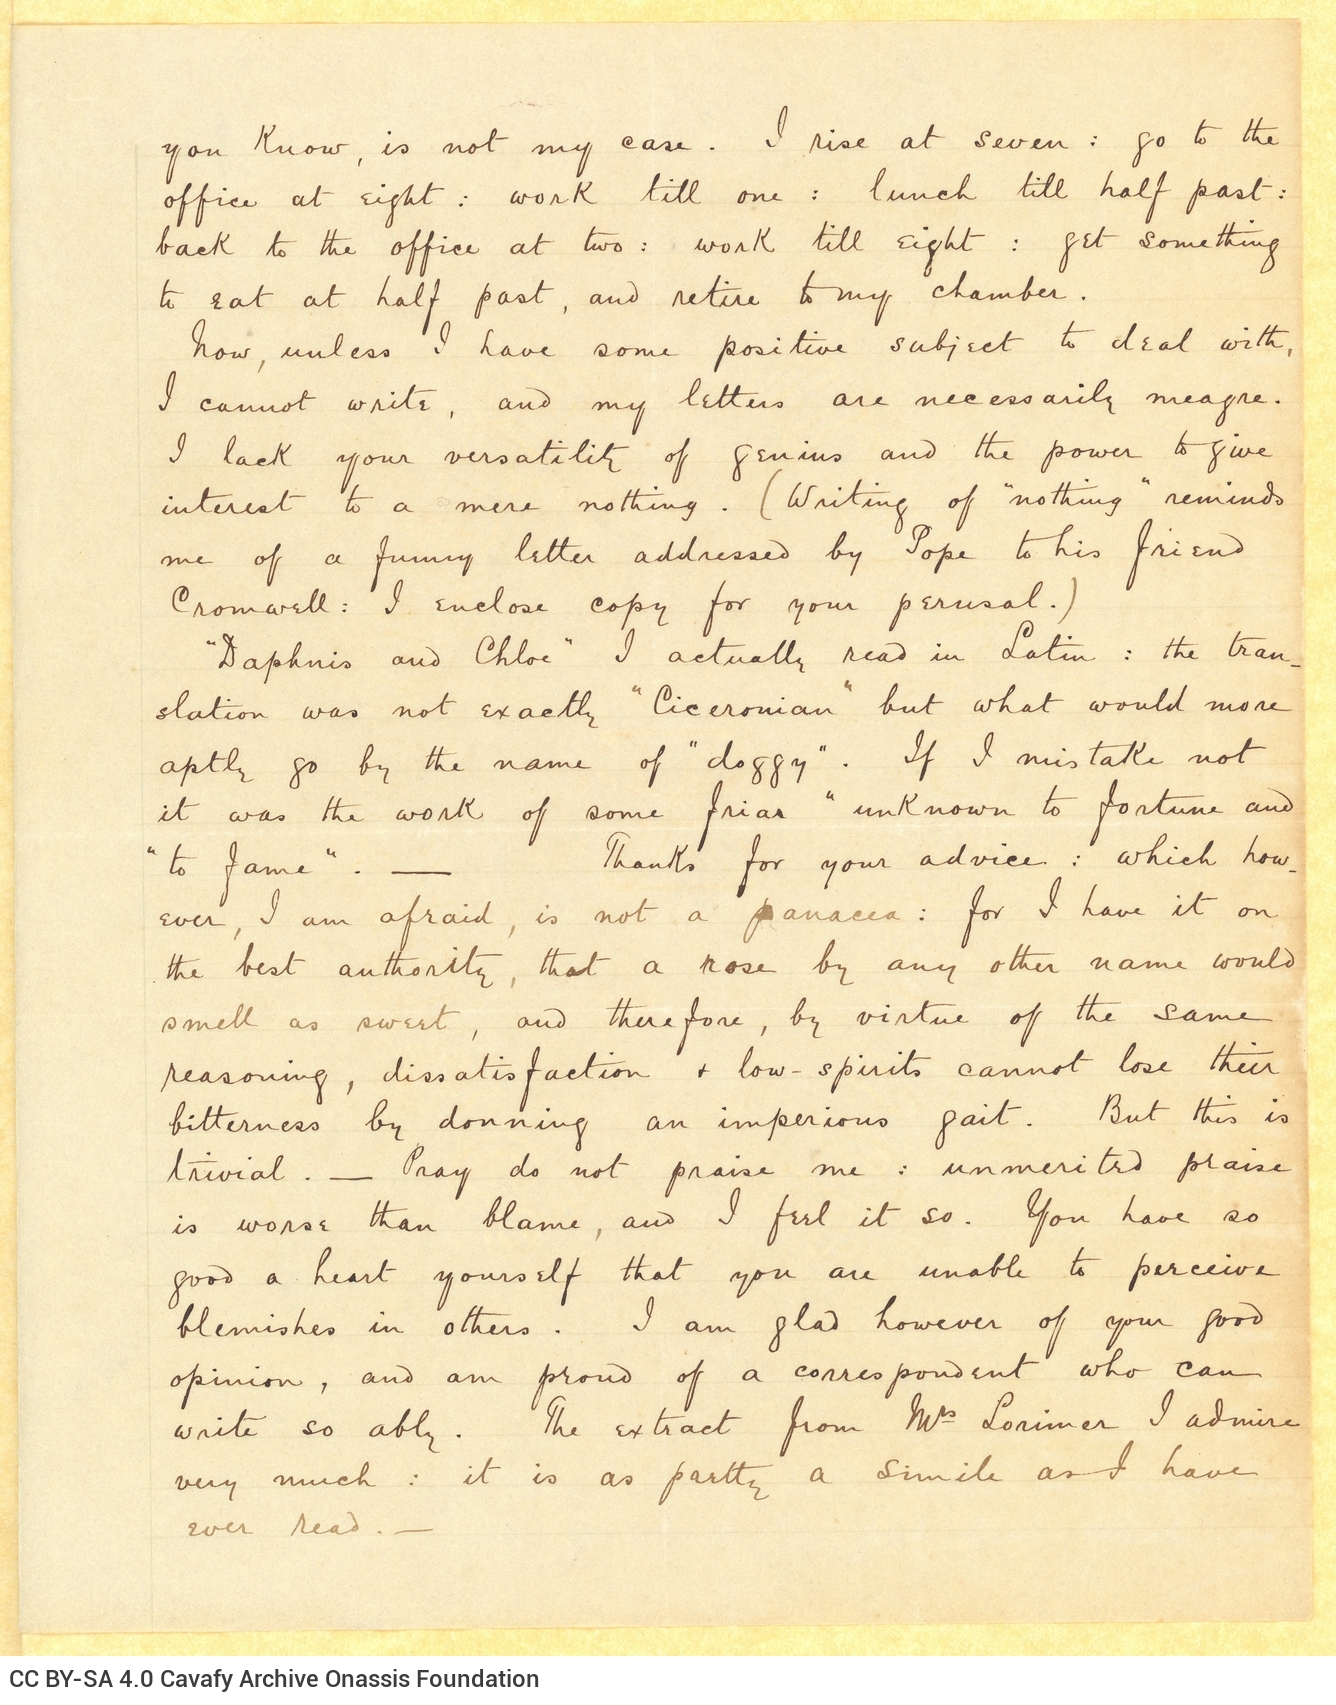 you know, is not my case. I rise at seven: go to the
office at eight: work till one: lunch till half past:
back to the office at two: work till eight: get something
to eat at half past, and retire to my chamber.
Now, unless I have some positive subject to deal with,
I cannot write, and my letters are necessarily meagre.
I lack your versatility of genius and the power to give
interest to a mere nothing. (Writing of "nothing" reminds
me of a funny letter addressed by Pope to his friend
Cromwell: I enclose copy for your perusal.)
"Daphnis and Chloe" I actually read in Latin: the tran-
slation was not exactly "Ciceronian" but what would more
aptly go by the name of "doggy". If I mistake not
it was the work of some friar "unknown to fortune and
"to fame". — Thanks for your advice: which how-
ever, I am afraid, is not a panacea: for I have it on
the best authority, that a rose by any other name would
smell as sweet, and therefore, by virtue of the same
reasoning, dissatisfaction & low-spirits cannot lose their
bitterness by donning an imperious gait. But this is
trivial. — Pray do not praise me: unmerited praise
is worse than blame, and I feel it so. You have so
good a heart yourself that you are unable to perceive
blemishes in others. I am glad however of your good
opinion, and am proud of a correspondent who can
write so ably. The extract from Mrs Lorimer I admire
very much: it is as pretty a simile as I have
ever read. —
CC BY-SA 4.0 Cavafy Archive Onassis Foundation